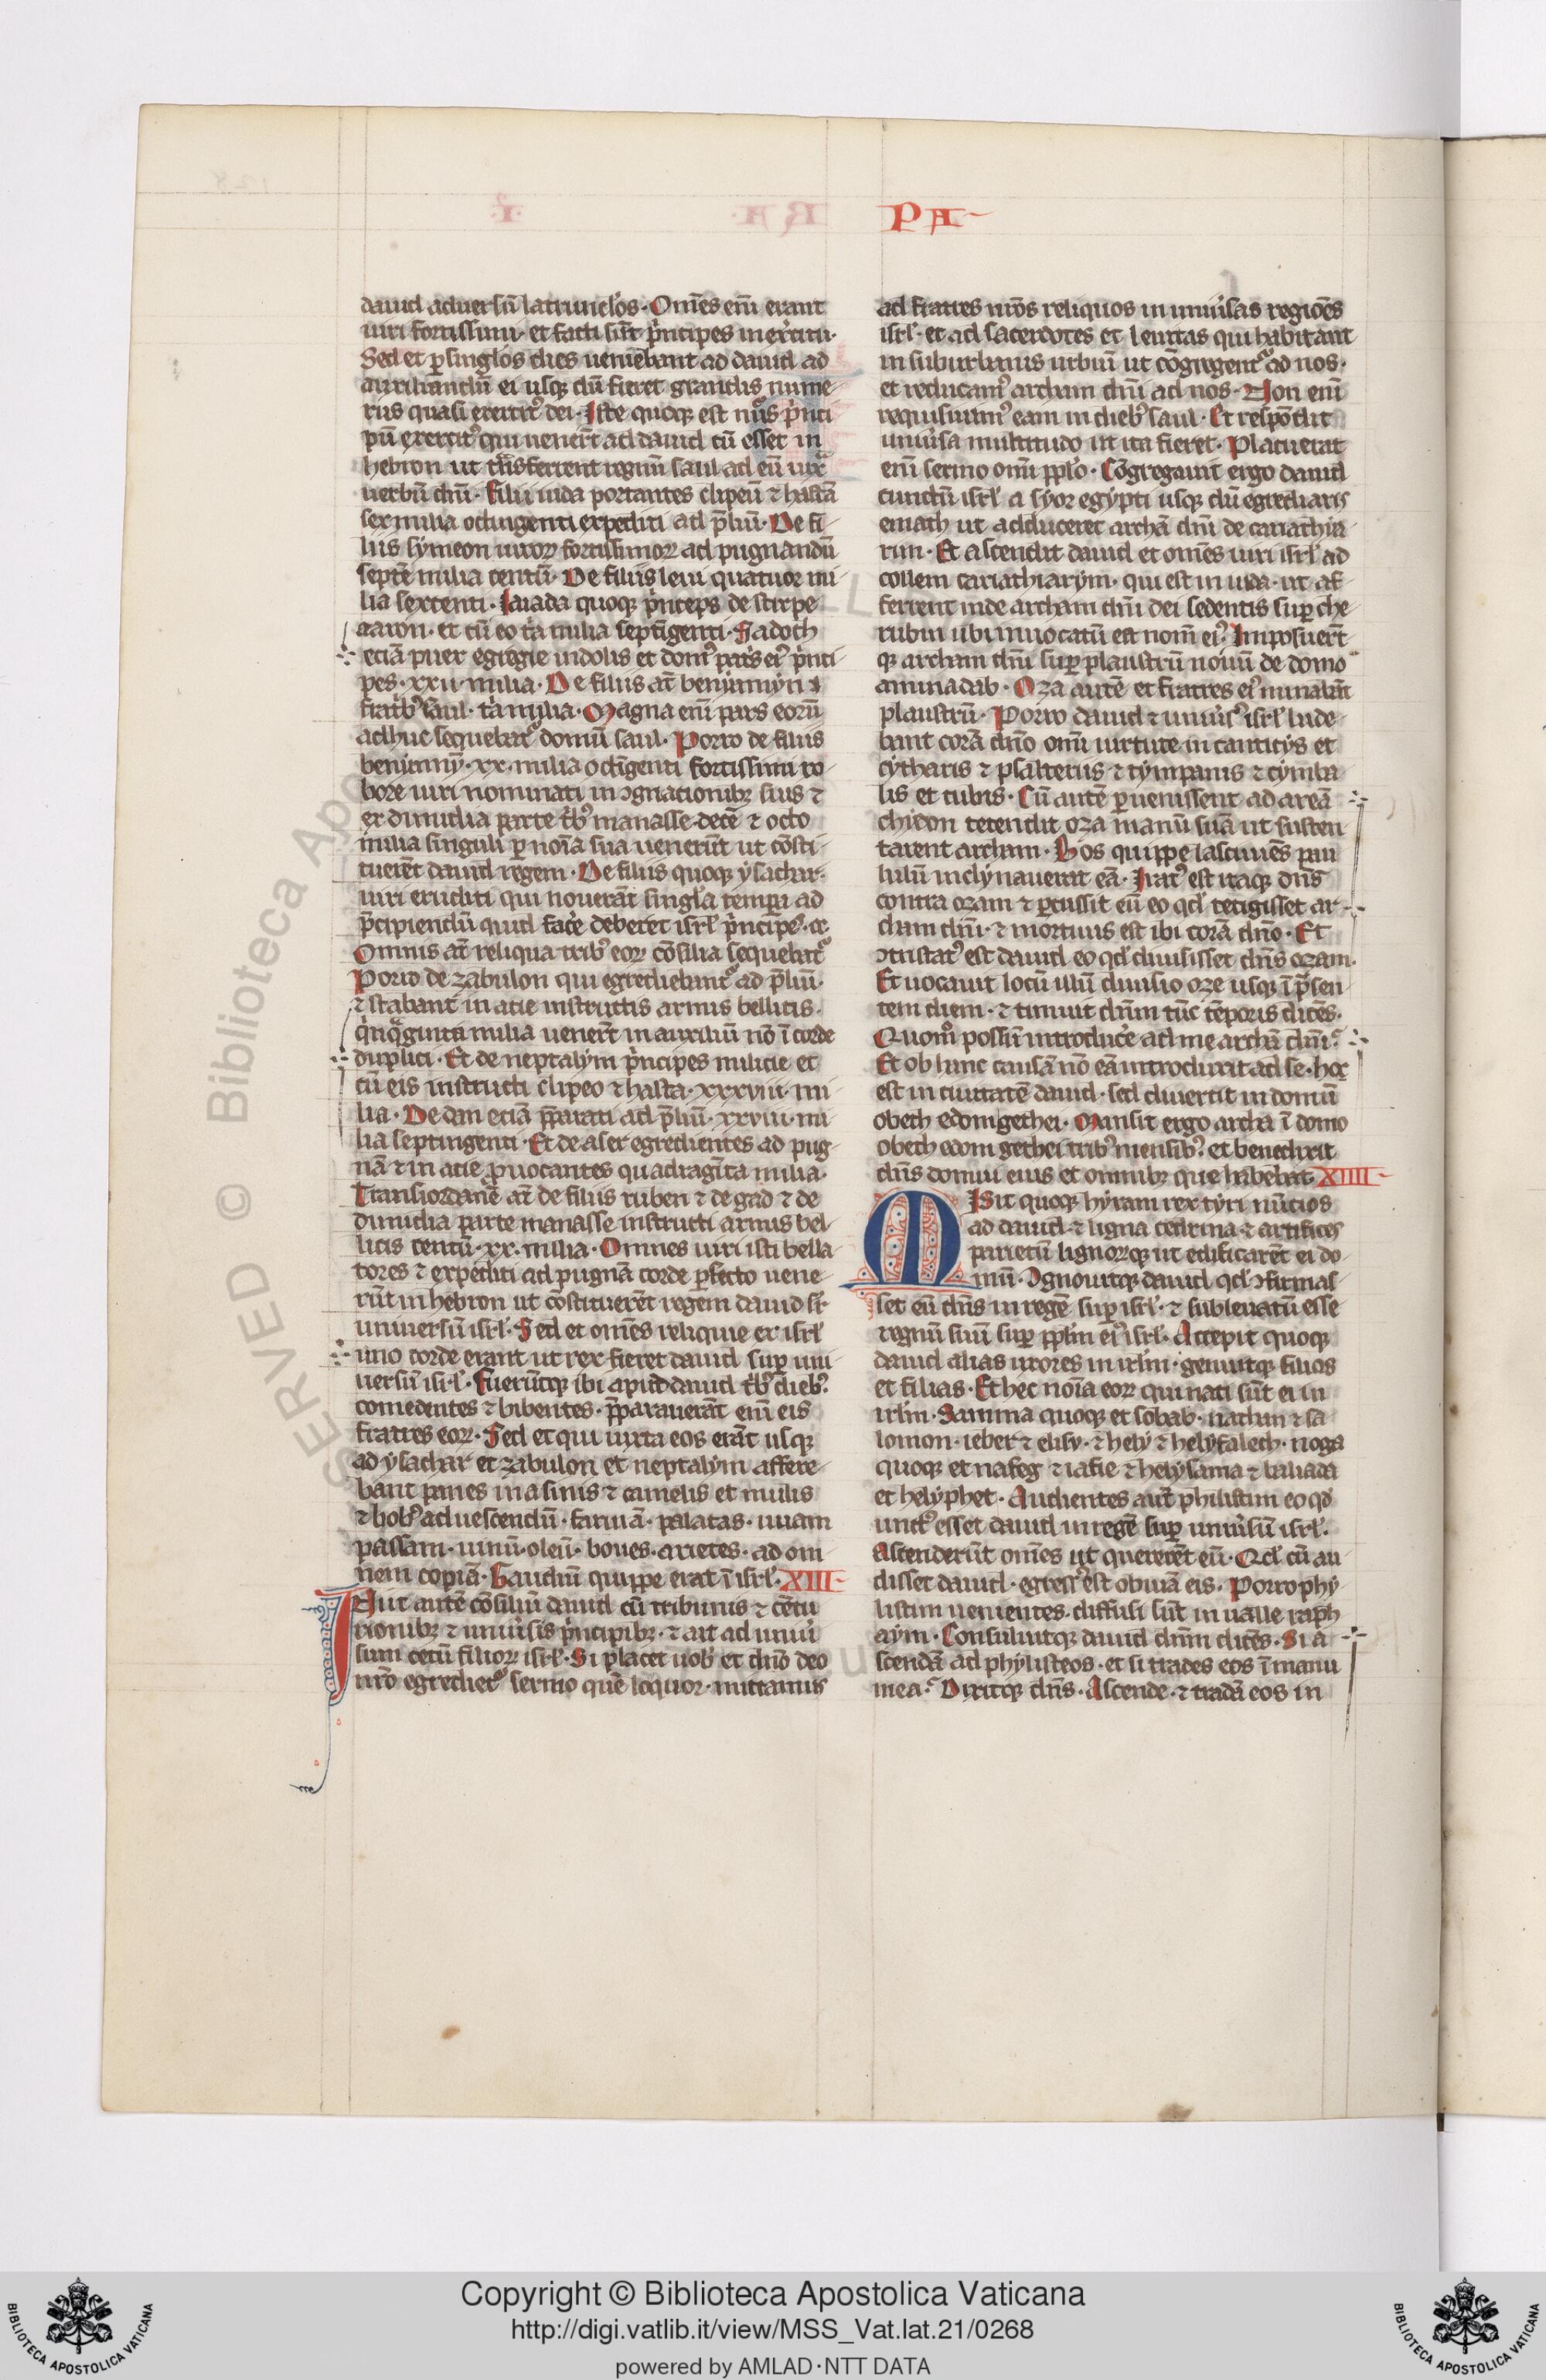 PA
dauid aduersū latrunclos · Om̄es eni erant
uiri fortissimi · et facti sūt p̄ncipes in exc̄itu ·
Sed et ꝑ singlos dies ueniebant ad dauid ad
auxiliandū ei usq̨ dū fieret grandis nume
rus quasi exercit᷒ dei · Iste quoq̨ est nū᷒s p̄nci
pū exercit᷒ qui uener̄t ad dauid cū esset in
hebron ut tn̄sferrent regnū saul ad eū iux̄
uerbū dn̄i · Filii iuda portantes clipeū ⁊ hastā
sex milia octingenti expediti ad p̄liū · De fi
liis symeon uiroꝝ fortissimoꝝ ad pugnandū
septē milia centū · De filiis leui quatuor mi
lia sexcenti · Iaiada quoq̨ p̄nceps de stirpe
aaron · et cū eo t̄a milia septīgenti · Sadoch
eciā puer egregie indolis et dom᷒ pat̄s ei᷒ p̄nci
pes · xxii milia · De filiis at̄ beniamyn
fratb᷒ saul · t̄a milia · Magna eni pars eorū
adhuc sequebat᷒ domū saul · Porro de filiis
effraym̄ · xx · milia octīgenti fortissimi ro
bore uiri nominati in ꝯgnationibꝫ suis ⁊
ex dimidia parte t̄b᷒ manasse · decē ⁊ octo
milia singuli ꝑ noīa sua uenerūt ut cōsti
tuerēt dauid regem · De filiis quoq̨ ysachar ·
uiri eruditi qui nouerāt singla tempa ad
p̄cipiendū quid fac̄e deberet isrl̄ p̄ncipes · cc
Omnis at̄ reliqua trib᷒ eoꝝ cōsilia sequebat᷒
Porro de zabulon qui egrediebant᷒ ad p̄liū ·
⁊ stabant in acie instructis armis bellicis ·
qͥnqᷓginta milia uener̄t in auxiliū nō ī corde
duplici · Et de neptalym p̄ncipes milicie et
cū eis instructi clipeo ⁊ hasta · xxxviii · mi
lia · De dan eciā p̄parati ad p̄liū · xxviii · mi
lia septingenti · Et de aser egredientes ad pug
nā ⁊ in acie ꝓuocantes quadragīta milia ·
Transiordanē at̄ de filiis ruben ⁊ de gad ⁊ de
dimidia parte manasse instructi armis bel
licis centū · xx · milia · Omnes uiri isti bella
tores ⁊ expediti ad pugnā corde ꝑfecto uene
rūt in hebron ut cōstituerēt regem dauid sr̄
uniuersū isrl̄ · Sed et om̄es reliquie ex isrl̄
uno corde erant ut rex fieret dauid suꝑ uni
uersū isrl̄ · Fuerūtq̨ ibi apud dauid t̄b᷒ dieb᷒ ·
comedentes ⁊ bibentes · p̄parauerāt eni eis
fratres eoꝝ · Sed et qui iuxta eos erāt usq̨
ad ysachar et zabulon et neptalym affere
bant panes in asinis ⁊ camelis et mulis
⁊ bob᷒ ad uescendū · farinā · palatas · uuam
passam · uinū · oleū · boues · arietes · ad om
nem copiā · Gaudiū quippe erat ī isrl̄ · XIII
INiit autē cōsiliū dauid cū tribunis ⁊ cētu
rionibꝫ ⁊ uniu̓sis p̄ncipibꝫ · ⁊ ait ad uniu̓
sum cetū filioꝝ isrl̄ · Si placet uob᷒ et dn̄o deo
nr̄o egrediet᷒ sermo quē loquor · mittamus
ad fratres nr̄os reliquos in uniu̓sas regiōes
isrl̄ · et ad sacerdotes et leuitas qui habitant
in suburbanis urbiū ut cōgregent᷒ ad nos ·
et reducam᷒ archam dn̄i ad nos · Non eni
requisiuim᷒ eam in dieb᷒ saul · Et respōdit
uniu̓sa multitudo ut ita fieret · Placuerat
eni sermo omi ppl̄o · Cōgregauit ergo dauid
cunctū isrl̄ a syor egypti usq̨ dū egrediaris
emath ut adduceret archā dn̄i de cariathia
rim · Et ascendit dauid et om̄es uiri isrl̄ ad
collem cariathiarym · qui est in iuda · ut af
ferrent inde archam dn̄i dei sedentis suꝑ che
rubin ubi inuocatū est nom̄ ei᷒ · Imposuer̄t
q̨ archam dn̄i suꝑ plaustrū nouū de domo
aminadab · Oza autē et fratres ei᷒ minabāt
plaustrū · Porro dauid ⁊ uniu̓s᷒ isrl̄ lude
bant corā dn̄o omi uirtute in canticis et
cytharis ⁊ psalteriis ⁊ tympanis ⁊ cymba
lis et tubis · Cū autē ꝑuenissent ad areā
chidon tetendit oza manū suā ut susten
taret archam · Bos quippe lasciuiēs pau
lulū inclynauerat eā · Irat᷒ est itaq̨ dn̄s
contra ozam ⁊ ꝑcussit eū eo qd̄ tetigisset ar
cham dn̄i · ⁊ mortuus est ibi corā dn̄o · Et
ꝯtristat᷒ est dauid eo qd̄ diuisisset dn̄s ozam ·
Et uocauit locū illū diuisio oze usq̨ ī p̄sen
tem diem · ⁊ timuit dn̄m tūc tēporis dicēs ·
Quom̄o possū introduc̄e ad me archā dn̄i ·
Et ob hanc causā nō eā introduxit ad se · hoc
est in ciuitatē dauid · sed diuertit in domū
obeth edom gethei · Mansit ergo archa ī domo
obeth edom gethei trib᷒ mensib᷒ · et benedixit
dn̄s domui eius et omnibꝫ que habebat · XIIII
MIsit quoq̨ hyram rex tyri nūcios
ad dauid · ⁊ ligna cedrina · ⁊ artifices
parietū lignoꝝq̨ ut edificarēt ei do
mū · ꝯgnouitq̨ dauid qd̄ ꝯfirmas
set eū dn̄s in regē suꝑ isrl̄ · ⁊ subleuatū esse
regnū suū suꝑ ppl̄m ei᷒ isrl̄ · Accepit quoq̨
dauid alias uxores in irl̄m · genuitq̨ filios
et filias · Et hec noīa eoꝝ qui nati sūt ei in
irl̄m · Samma quoq̨ et sobab · nathan ⁊ sa
lomon · ieber ⁊ elisu · ⁊ hely ⁊ helyfalech · noga
quoq̨ et nafeg ⁊ iafie ⁊ helysama ⁊ baliada
et helyphet · Audientes aut̄ philistim eo qd̄
unct᷒ esset dauid in regē suꝑ uniu̓sū isrl̄ ·
Ascenderūt om̄es ut quererēt eū · Qd̄ cū au
disset dauid · egress᷒ est obuiā eis · Porro phy
listim uenientes · diffusi sūt in ualle raph
aym · Consuluitq̨ dauid dn̄m dicēs · Si a
scendā ad phylisteos · et si trades eos ī manu
mea · Dixitq̨ dn̄s · Ascende · ⁊ tradā eos in
© Biblioteca Apo
SERVED
Copyright © Biblioteca Apostolica Vaticana
http://digi.vatlib.it/view/MSS_Vat.lat.21/0268
powered by AMLAD·NTT DATA
BIBLIOTECA APOSTOLICA VATICANA
BIBLIOTECA APOSTOLICA VATICANA